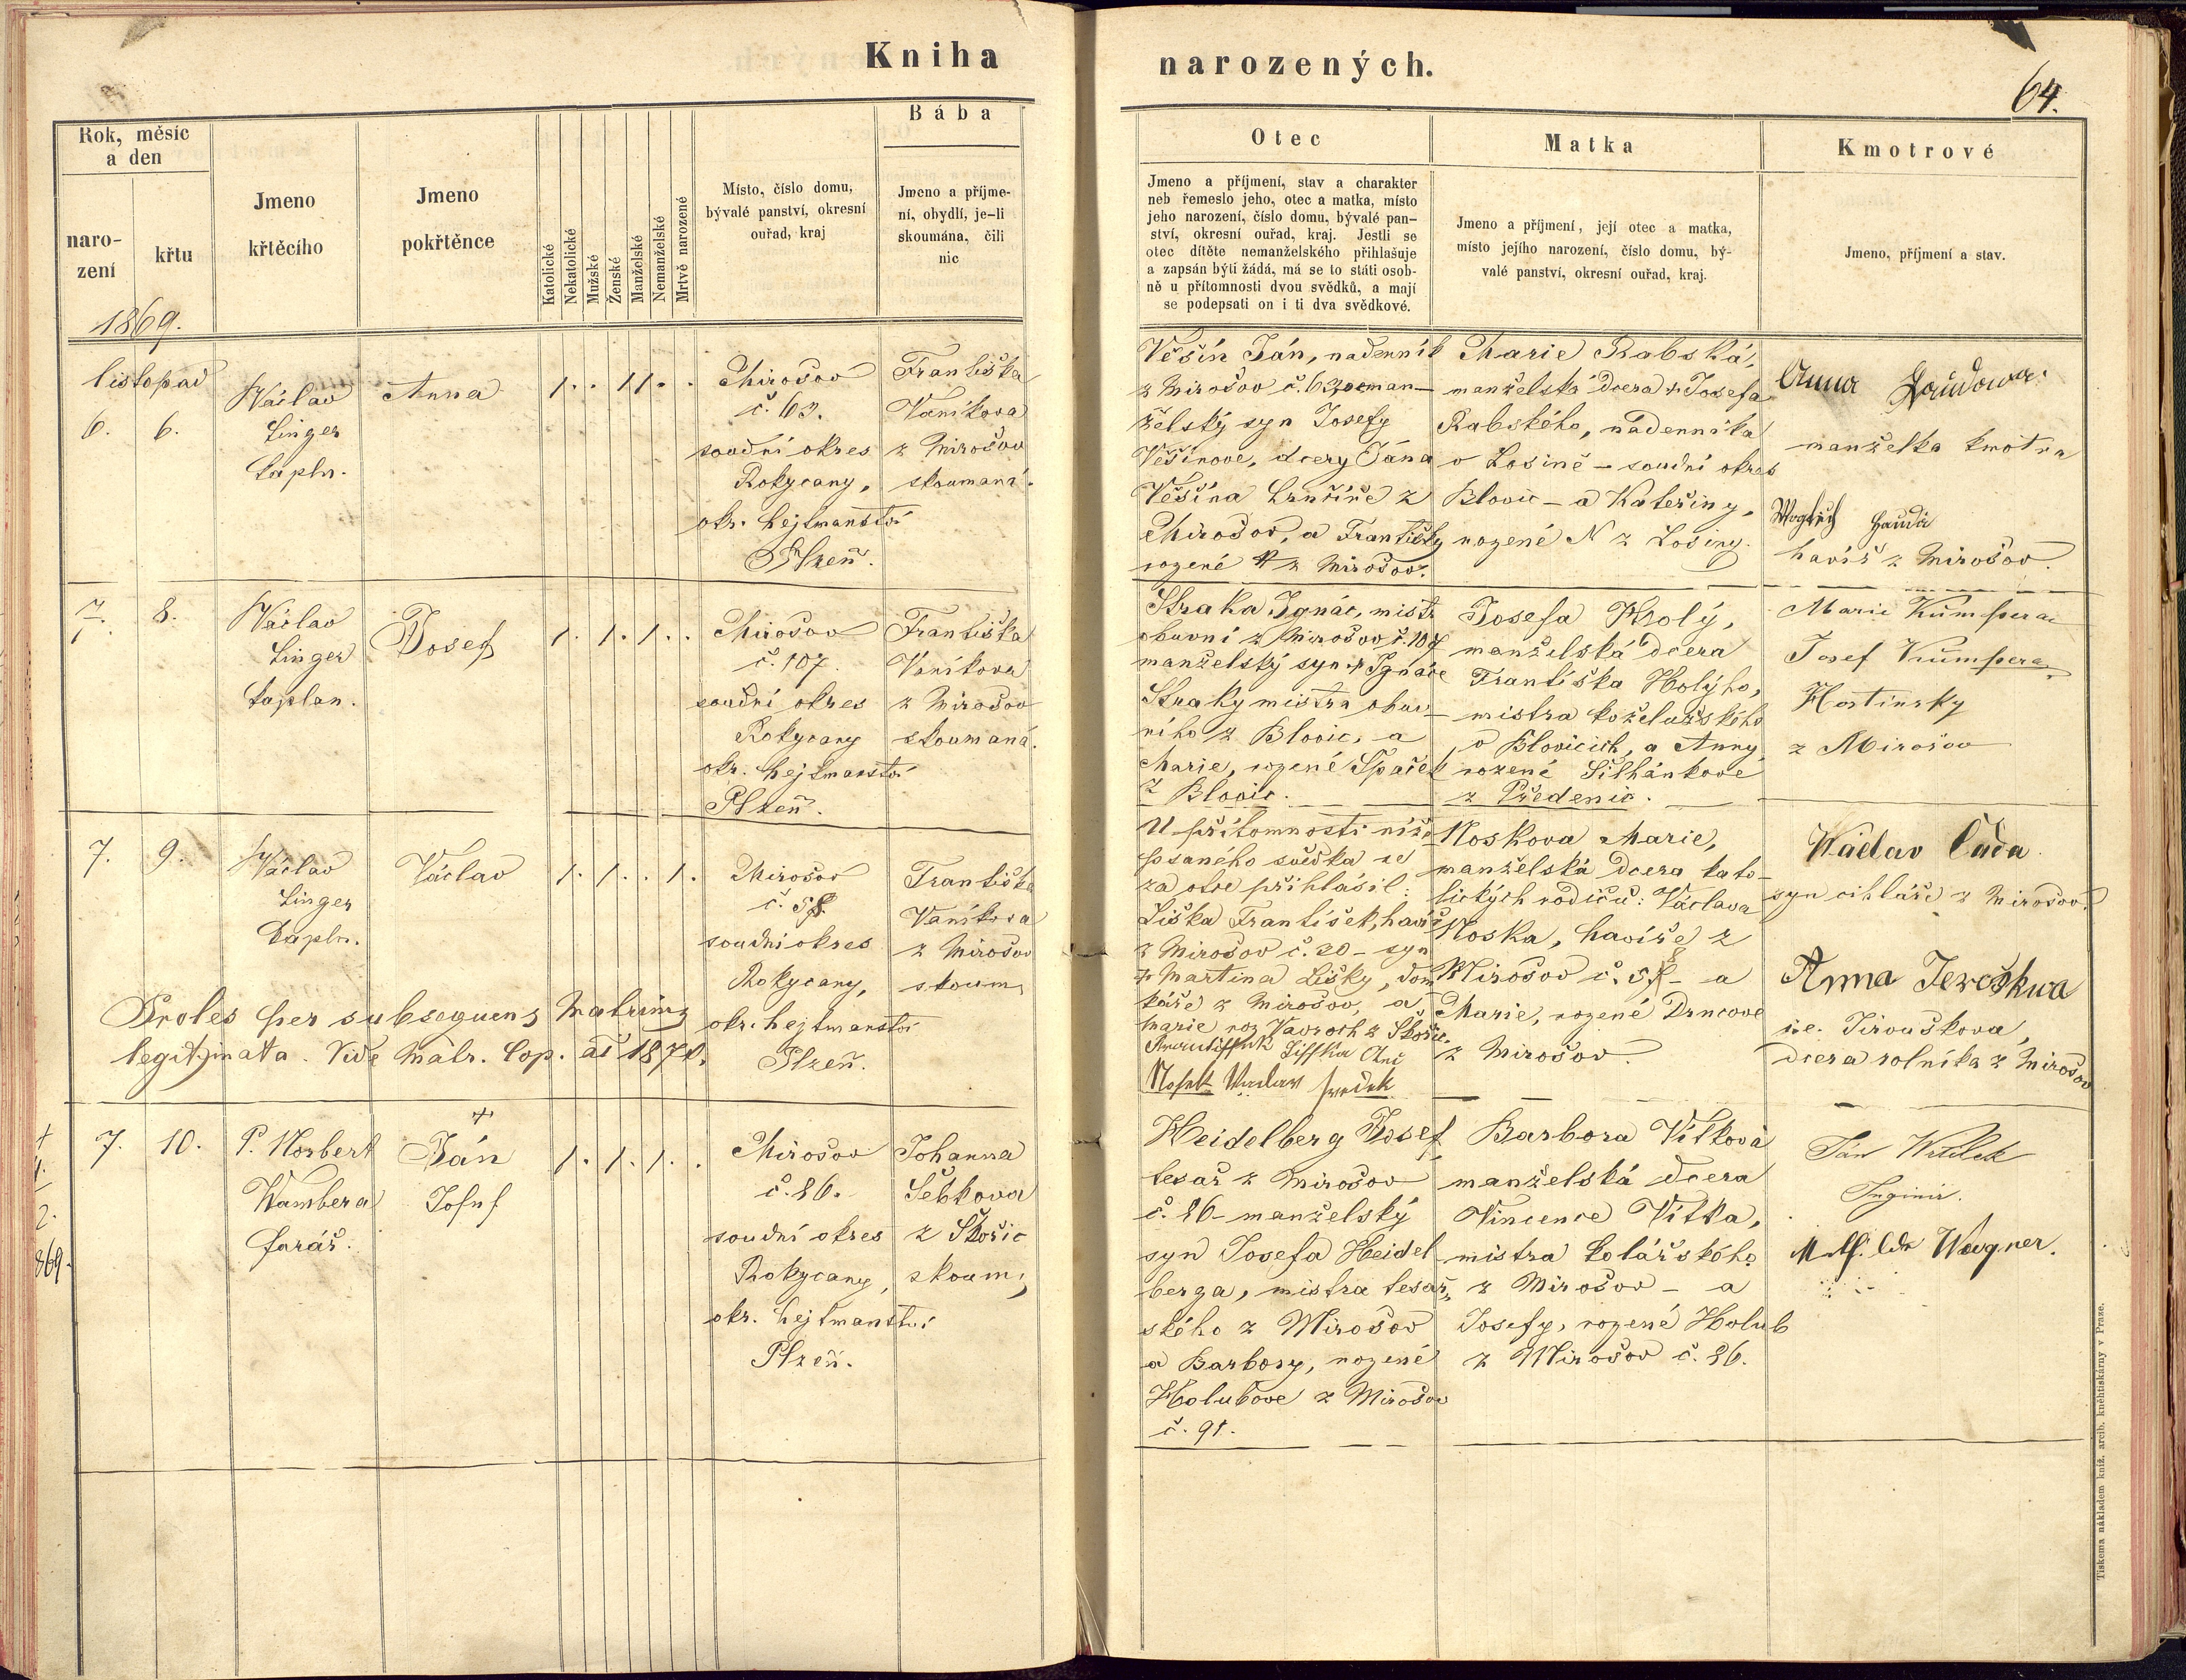 Kniha
narozených.
64.
Rok, měsíc
a den
naro-
zení
křtu
1869.
Jmeno
křtěcího
Jmeno
pokřtěnce
Katolické
Nekatolické
Mužské
Ženské
Manželské
Nemanželské
Mrtvě narozené
Místo, číslo domu,
bývalé panství, okresní
ouřad, kraj
Bába
Jmeno a příjme-
ní, obydlí, je-li
skoumána, čili
nic
Otec
Jmeno a příjmení, stav a charakter
neb řemeslo jeho, otec a matka, místo
jeho narození, číslo domu, bývalé pan-
ství, okresní ouřad, kraj. Jestli se
otec dítěte nemanželského přihlašuje
a zapsán býti žádá, má se to státi osob-
ně u přítomnosti dvou svědků, a mají
se podepsati on i ti dva svědkové.
Matka
Jmeno a příjmení, její otec a matka,
místo jejího narození, číslo domu, bý-
valé panství, okresní ouřad, kraj.
Kmotrové
Jmeno, příjmení a stav.
listopad
6. 6.
Václav
Linger
kapln.
Anna
1. . 1 1 . .
Mirošov
č. 63.
soudní okres
Rokycany,
okr. hejtmanství
Plzeň.
Františka
Vaníkova
z Mirošov
skoumaná.
Věšín Ján, nadenník
z Mirošov č. 63, neman-
želský syn Josefy
Věšínove, dcery Jána
Věšína hrnčíře z
Mirošov, a Františky
rozené N z Mirošov.
Marie Rabská,
manželská dcera + Josefa
Rabského, nadenníka
v Losině - soudní okres
Blovic - a Kateřiny,
rozené N z Losiny.
Anna
manželka kmotra
havíř z Mirošov.
7. 8.
Václav
Linger
kaplan.
Josef
1. . 1 . 1 . .
Mirošov
č. 107.
soudní okres
Rokycany
okr. hejtmanství
Plzeň.
Františka
Vaníkova
z Mirošov
skoumaná.
Straka Ignác, mistr
obuvní z Mirošov č. 107
manželský syn + Ignáce
Straky mistra obuv-
ního z Blovic, a
Marie, rozené Špaček
z Blovic.
Josefa Holý,
manželská dcera
Františka Holýho,
mistra koželužského
v Blovicích, a Anny
rozené Silhánkove
z Předenic.
Marie Kumpera
Josef Kumpera
Hostinsky
z Mirošov
7. 9.
Václav
Linger
kapln.
Václav
1. . 1 . . 1 .
Mirošov
č. 58.
soudní okres
Rokycany,
okr. hejtmanství
Plzeň.
Františka
Vaníkova
z Mirošov
skoum.
Proles per subsequens Matrim;
legitimata. Vide Matr. Cop.
U přítomnosti níže
psaného svědka se
za otce přihlásil:
Liška František, havíř
z Mirošov č. 20 - syn
+ Martina Lišky, dom
káře z Mirošov, a
Marie roz. Vavroch z Skořic.
Liffka Otec
Nosek Vaclaw swedek
Noskova Marie,
manželská dcera kato-
lických rodičů: Václava
Noska, havíře z
Mirošov č. 58 - a
Marie, rozené Drncove
z Mirošov.
Wáclav Cáda
syn cihláře z Mirošov.
Anna Jeroškwa
i.e. Jiroušková,
dcera rolníka z Mirošov
+
1.
2.
869.
7. 10.
P. Norbert
Wambera
farář.
+
Ján
Josef
1. . 1 . 1 . .
Mirošov
č. 86.
soudní okres
Rokycany,
okr. hejtmanství
Plzeň.
Johanna
Šebkova
z Skořic
skoum;
Heidelberg Josef
tesař z Mirošov
č. 86 - manželský
syn Josefa Heidel
berga, mistra tesař-
ského z Mirošov
a Barbory, rozené
Holubove z Mirošov
č. 91.
Barbora Vítková
manželská dcera
Vincence Vítka,
mistra kolářského
z Mirošov - a
Josefy, rozené Holub
z Mirošov č. 86.
Ján
Inginir.
Wagner.
Tiskem a nákladem kníž. arcib. kněhtiskárny v Praze.